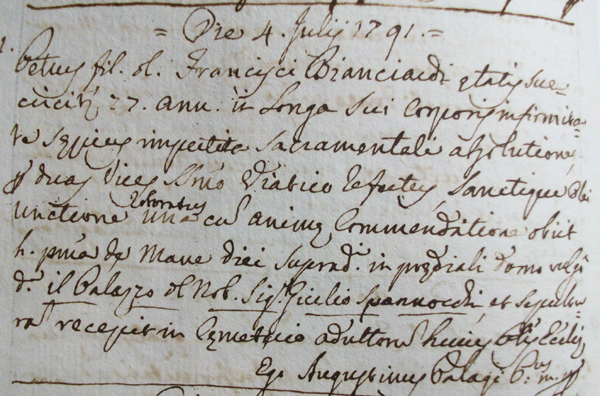 = Die 4. Julij 1791. =
Petrus fil. ol. Francisci Bianciardi etatis sue
circit. 77. ann. in longa sui corporis infirmita-
te sepius impertita sacramentali absolutione,
p duas vices SSmo Viatico refectus, Sanctique Olei
unctione roboratus una cu animę commendatione obiit
h. pma de mane diei suprad. in prędiali domo vulg
d. il Palazzo del Nob. Sig. Giulio Spannocchi, et sepultu-
ra recepit in Cęmeterio adultoru huius Ecclię
Ego Augustinus Palagi P.us m. pp